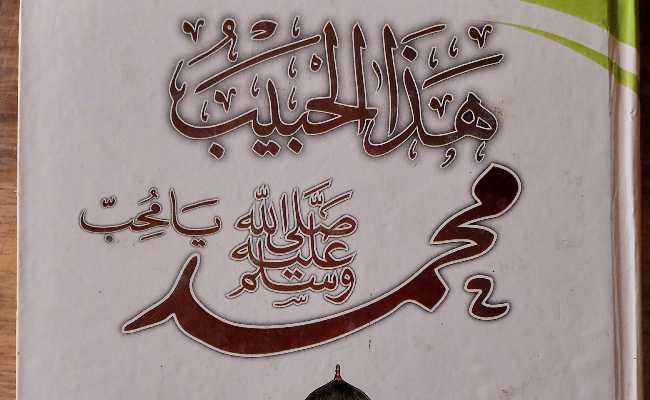 هَذَا الحَبِيْبُ
محمد
صَلَّى اللَّه عَلَيْهِ وَسَلَّم
يَا مُحِبّ